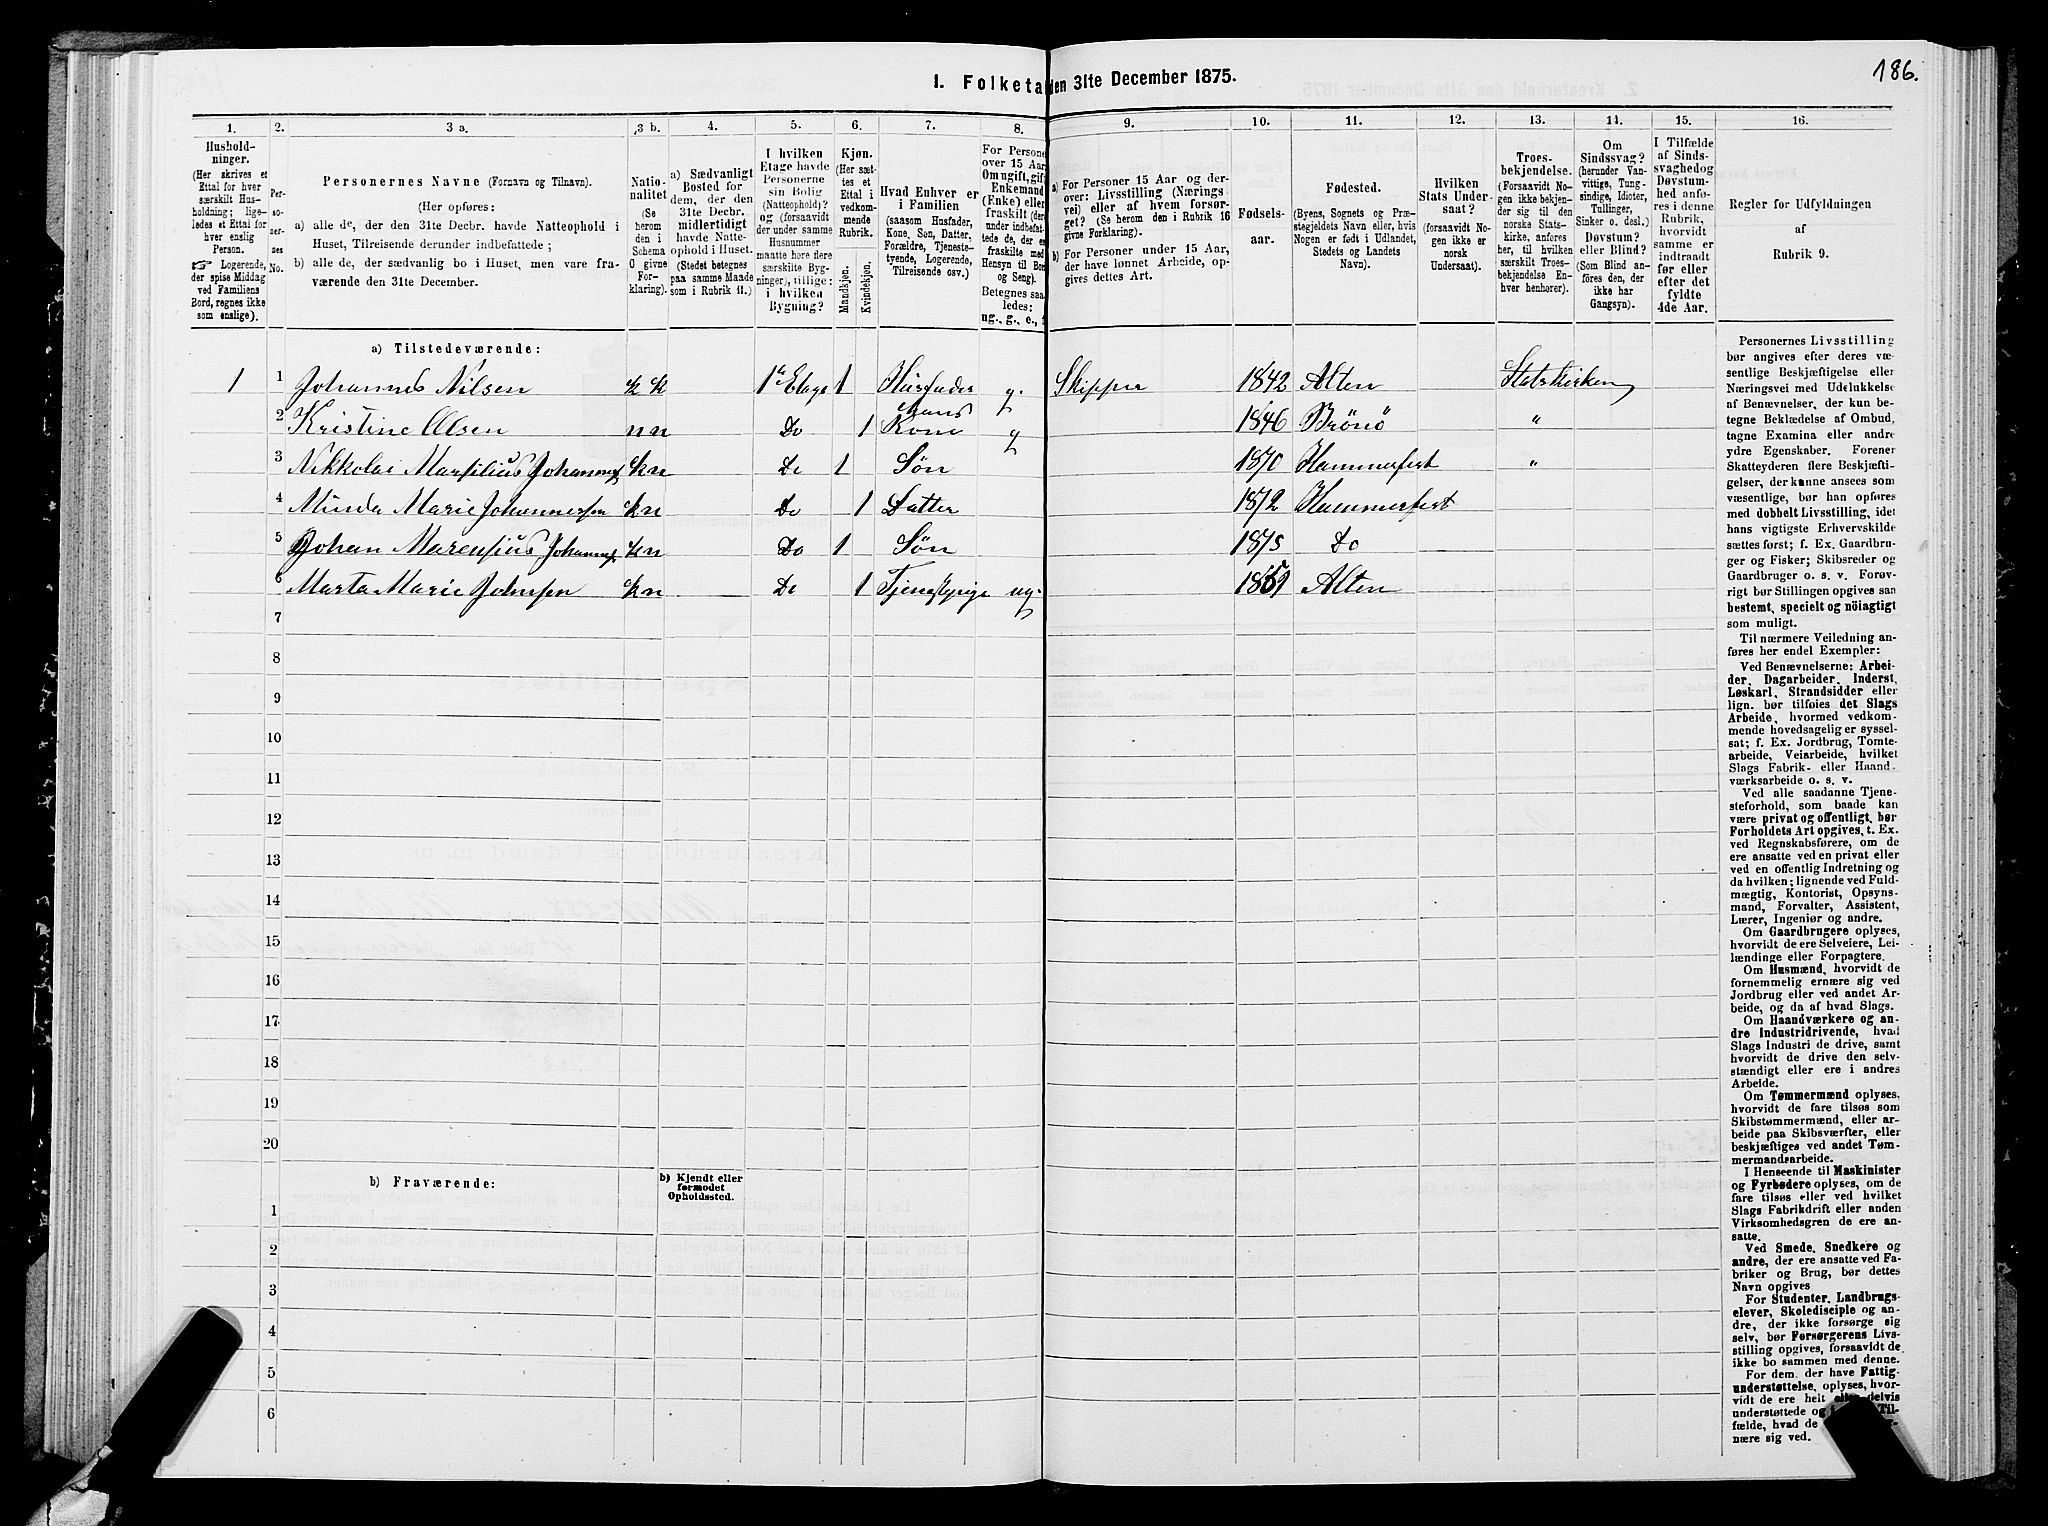 186.
1. Folketal den 31te December 1875.
1. 2. 3 a. 3 b. 4. 5. 6. 7. 8. 9. 10. 11. 12. 13. 14. 15. 16.
Hushold-
ninger.
(Her skrives et
Ettal for hver
særskilt Hus-
holdning; lige-
ledes et Ettal for
hver enslig
Person.
☞ Logerende,
der spise Middag
ved Familiens
Bord, regnes ikke
som enslige).
Per-
so-
ner-
nes
No.
Personernes Navne (Fornavn og Tilnavn).
(Her opføres:
a) alle de, der den 31te Decbr. havde Natteophold i
Huset, Tilreisende derunder indbefattede;
b) alle de, der sædvanlig bo i Huset, men vare fra-
værende den 31te December.
Natio-
nalitet
(Se
herom
den i
Schema
O givne
For-
klaring).
a) Sædvanligt
Bosted for
dem, der den
31te Decbr.
midlertidigt
havde Natte-
ophold i Huset.
(Stedet betegnes
paa samme Maade
som i Rubrik 11.)
I hvilken
Etage havde
Personerne
sin Bolig
(Natteophold)?
og (forsaavidt
der under samme
Husnummer
maatte høre flere
særskilte Byg-
ninger), tillige:
i hvilken
Bygning?
Kjøn.
(Her sæt-
tes et
Ettal i
vedkom-
mende
Rubrik.
Mandkjøn.
Kvindekjøn.
Hvad Enhver er
i Familien
(saasom Husfader,
Kone, Søn, Datter,
Forældre, Tjeneste-
tyende, Logerende,
Tilreisende osv.)
For Personer
over 15 Aar
Om ugift, gift
Enkemand
(Enke) eller
fraskilt (der
under indbefat-
tede de, der er
fraskilte med
Hensyn til Bord
og Seng)
Betegnes saa-
ledes:
ug., g., e., f.
a) For Personer 15 Aar og der-
over: Livsstilling (Nærings-
vei) eller af hvem forsør-
get? (Se herom den i Rubrik 16
givne Forklaring).
b) For Personer under 15 Aar,
der have lønnet Arbeide, op-
gives dettes Art.
Fødsels-
aar.
Fødested.
(Byens, Sognets og Præ-
stegjeldets Navn eller, hvis
Nogen er født i Udlandet,
Stedets og Landets
Navn).
Hvilken
Stats Under-
saat?
(forsaavidt No-
gen ikke er
norsk
Undersaat).
Troes-
bekjendelse.
(Forsaavidt No-
gen ikke bekjen-
der sig til den
norske Stats-
kirke, anføres
her, til hvilken
særskilt Troes-
bekjendelse En-
hver henhører).
Om
Sindssvag?
(herunder Van-
vittige, Tung-
sindige, Idioter,
Tullinger,
Sinker o. desl.)
Døvstum?
eller Blind?
(Som Blind an-
føres den, der
ikke har
Gangsyn).
I Tilfælde
af Sinds-
svaghed og
Døvstum-
hed anfø-
res i denne
Rubrik,
hvorvidt
samme er
indtraadt
før eller
efter det
fyldte
4de Aar.
Regler for Udfyldningen
af
Rubrik 9.
a) Tilstedeværende:
1 1 Johannes Nilsen k k 1te Etage 1 Husfader g. Skipper 1842 Alten Statskirken
2 Kristine Olsen n n Do 1 hans Kone g 1846 Brönö "
3 Nikkolai Marsilius Johannes k n Do 1 Søn 1870 Hammerfest "
4 Minda Marie Johannessen k n Do 1 Datter 1872 Hammerfest
5 Johan Marensius Johannes k n Do 1 Søn 1875 Do
6 Marta Marie Johnsen k n Do 1 Tjenestepige ug. Alten
7
8
9
10
11
12
13
14
15
16
17
18
19
20
b) Fraværende:
b) Kjendt eller
formodet
Opholdssted.
1
2
3
4
5
6
Personernes Livsstilling
bør angives efter deres væ-
sentlige Beskjæftigelse eller
Næringsvei med Udelukkelse
af Benævnelser, der kun be-
tegne Beklædelse af Ombud,
tagne Examina eller andre
ydre Egenskaber. Forener
Skatteyderen flere Beskjæfti-
gelser, der kunne ansees som
væsentlige, bør han opføres
med dobbelt Livsstilling, idet
hans vigtigste Erhvervskilde
sættes først; f. Ex. Gaardbru-
ger og Fisker; Skibsreder og
Gaardbruger o. s. v. Forøv-
rigt bør Stillingen opgives saa
bestemt, specielt og nöiagtigt
som muligt.
Til nærmere Veiledning an-
føres her endel Exempler:
Ved Benævnelserne: Arbei-
der, Dagarbeider, Inderst,
Løskarl, Strandsidder eller
lign. bør tilføies det Slags
Arbeide, hvormed vedkom-
mende hovedsagelig er syssel-
sat; f. Ex. Jordbrug, Tomte-
arbeide, Veiarbeide, hvilket
Slags Fabrik- eller Haand-
værksarbeide o. s. v.
Ved alle saadanne Tjene-
steforhold, som baade kan
være privat og offentligt, bør
Forholdets Art opgives, t. Ex.
ved Regnskabsførere, om de
ere ansatte ved en privat eller
ved en offentlig Indretning og
da hvilken; lignende ved Fuld-
mægtig, Kontorist, Opsyns-
mand, Forvalter, Assistent,
Lærer, Ingeniør og andre.
Om Gaardbrugere oplyses,
hvorvidt de ere Selveiere, Lei-
lændinge eller Forpagtere.
Om Husmænd, hvorvidt de
fornemmelig ernære sig ved
Jordbrug eller ved andet Ar-
beide, og da af hvad Slags.
Om Haandværkere og an-
dre Industridrivende, hvad
Slags Industri de drive, samt
hvorvidt de drive den selv-
stændigt eller ere i andres
Arbeide.
Om Tømmermænd oplyses,
hvorvidt de fare tilsøs som
Skibstømmermænd, eller ar-
beide paa Skibsværfter, eller
beskjæftiges ved andet Tøm-
mermandsarbeide.
I Henseende til Maskinister
og Fyrbødere oplyses, om de
fare tilsøs eller ved hvilket
Slags Fabrikdrift eller anden
Virksomhedsgren de ere an-
satte.
Ved Smede, Snedkere og
andre, der ere ansatte ved Fa-
briker og Brug, bør dettes
Navn opgives
For Studenter, Landbrugs-
elever, Skoledisciple og an-
dre, der ikke forsørge sig
selv, bør Forsørgerens Livs-
stilling opgives, forsaavidt de
ikke bo sammen med denne.
For dem, der have Fattig-
understøttelse, oplyses, hvor-
vidt de ere helt eller delvis
understøttede og i Til-
fælde, hvad de
nære sig ved.